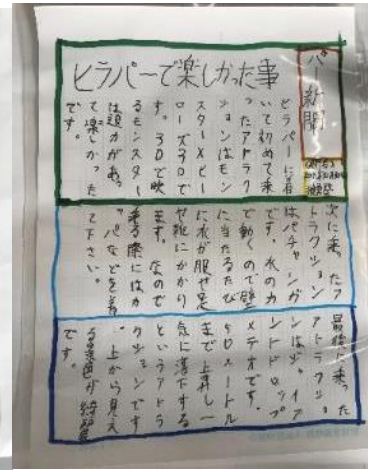 ヒラパーで楽しかった事
新聞
ヒラパーに着
いて初めて乗
ったアトラク
ションはモン
スターメビー
ローズ3Dで
す。3Dで映
るモンスター
は迫力があっ
て楽しかった
です。
次に乗ったア
トラクション
はバチャング
です。水の力
で動くので壁
に当たるたび
に水が服や足
や靴にかかり
ます。なので
乗る際にはカ
ッパなどを着
て下さい。
最後に乗った
アトラクショ
ンはジャイア
ントドロップ
メテオです。
メートル
まで上昇し一
気に落下する
というアトラ
クションです
。上から見え
る景色が綺麗
です。